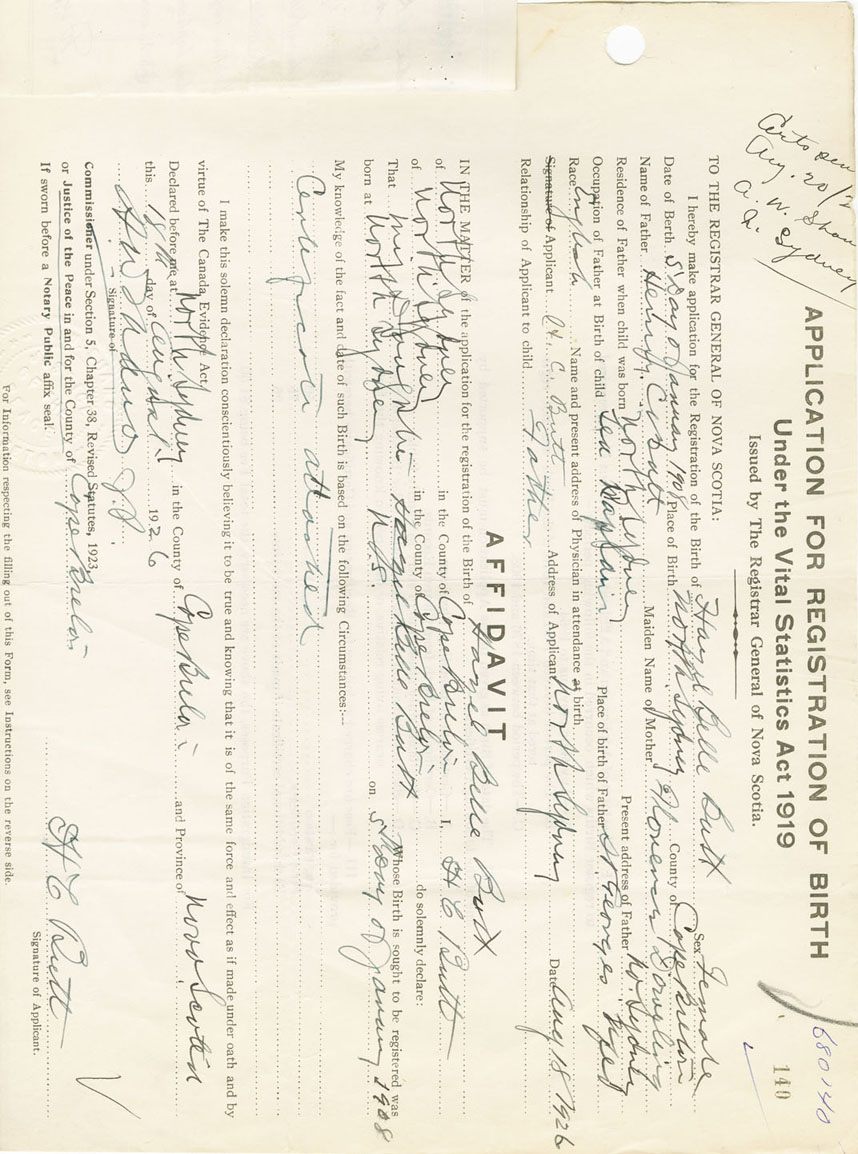 680140
140
Aug. 20/
W.
Sydney
APPLICATION FOR REGISTRATION OF BIRTH
Under the Vital Statistics Act 1919
Issued by The Registrar General of Nova Scotia.
TO THE REGISTRAR GENERAL OF NOVA SCOTIA:
I hereby make application for the Registration of the Birth of Hazel Belle Butt Sex Female
Date of Berth 5 Day of January 1908 Place of Birth North Sydney County of Cape Breton
Name of Father Henry Maiden Name of Mother Florence Dowling
Residence of Father when child was born North Sydney Present address of Father No. Sydney
Occupation of Father at Birth of child Sea Captain Place of birth of Father St Georges Nfld
Race English Name and present address of Physician in attendance at birth
Signature of Applicant C. Butt Address of Applicant North Sydney Date Aug 18 1926
Relationship of Applicant to child Father
AFFIDAVIT
IN THE MATTER of the application for the registration of the Birth of Hazel Belle Butt
of North Sydney in the County of Cape Breton I, H C Butt
of North Sydney in the County of Cape Breton do solemnly declare:
That my daughter Hazel Belle Butt Whose Birth is sought to be registered was
born at North Sydney N.S. on 5 Day of January 1908
My knowledge of the fact and date of such Birth is based on the following Circumstances:—
attached
I make this solemn declaration conscientiously believing it to be true and knowing that it is of the same force and effect as if made under oath and by
virtue of The Canada Evidence Act.
Declared before me at North Sydney in the County of Cape Breton and Province of Nova Scotia
this 18th day of August 1926
J.P.
Signature of
Commissioner under Section 5, Chapter 38, Revised Statutes, 1923,
or Justice of the Peace in and for the County of Cape Breton
If sworn before a Notary Public affix seal.
H C Butt
Signature of Applicant.
For Information respecting the filling out of this Form, see Instructions on the reverse side.